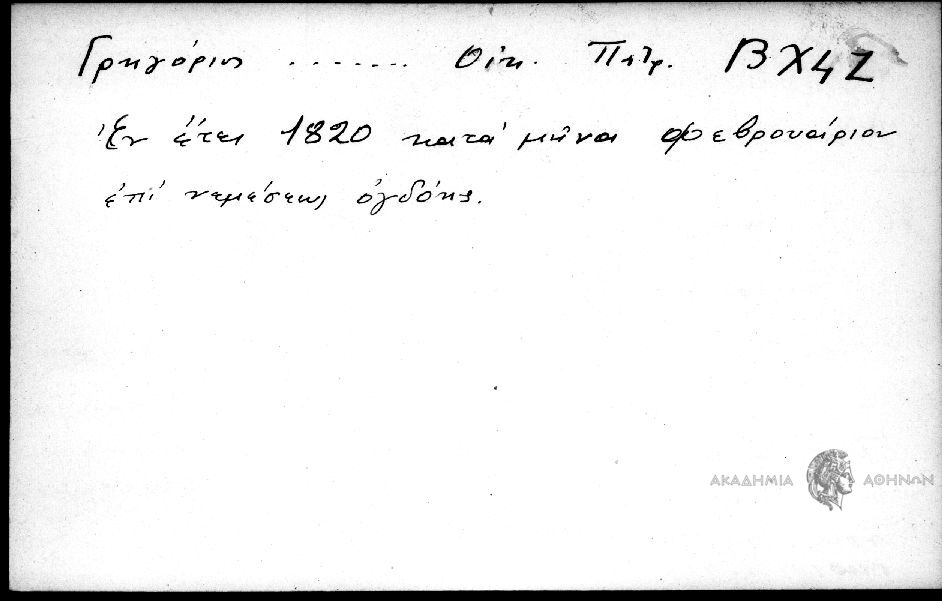 Γρηγόριος ....... Οἰκ. Πατρ. ΒΧ4Ζ
Ἐν ἔτει 1820 κατά μῆνα Φεβρουάριον
ἐπί νεμέσεως ὀγδόης.
ΑΚΑΔΗΜΙΑ ΑΘΗΝΩΝ